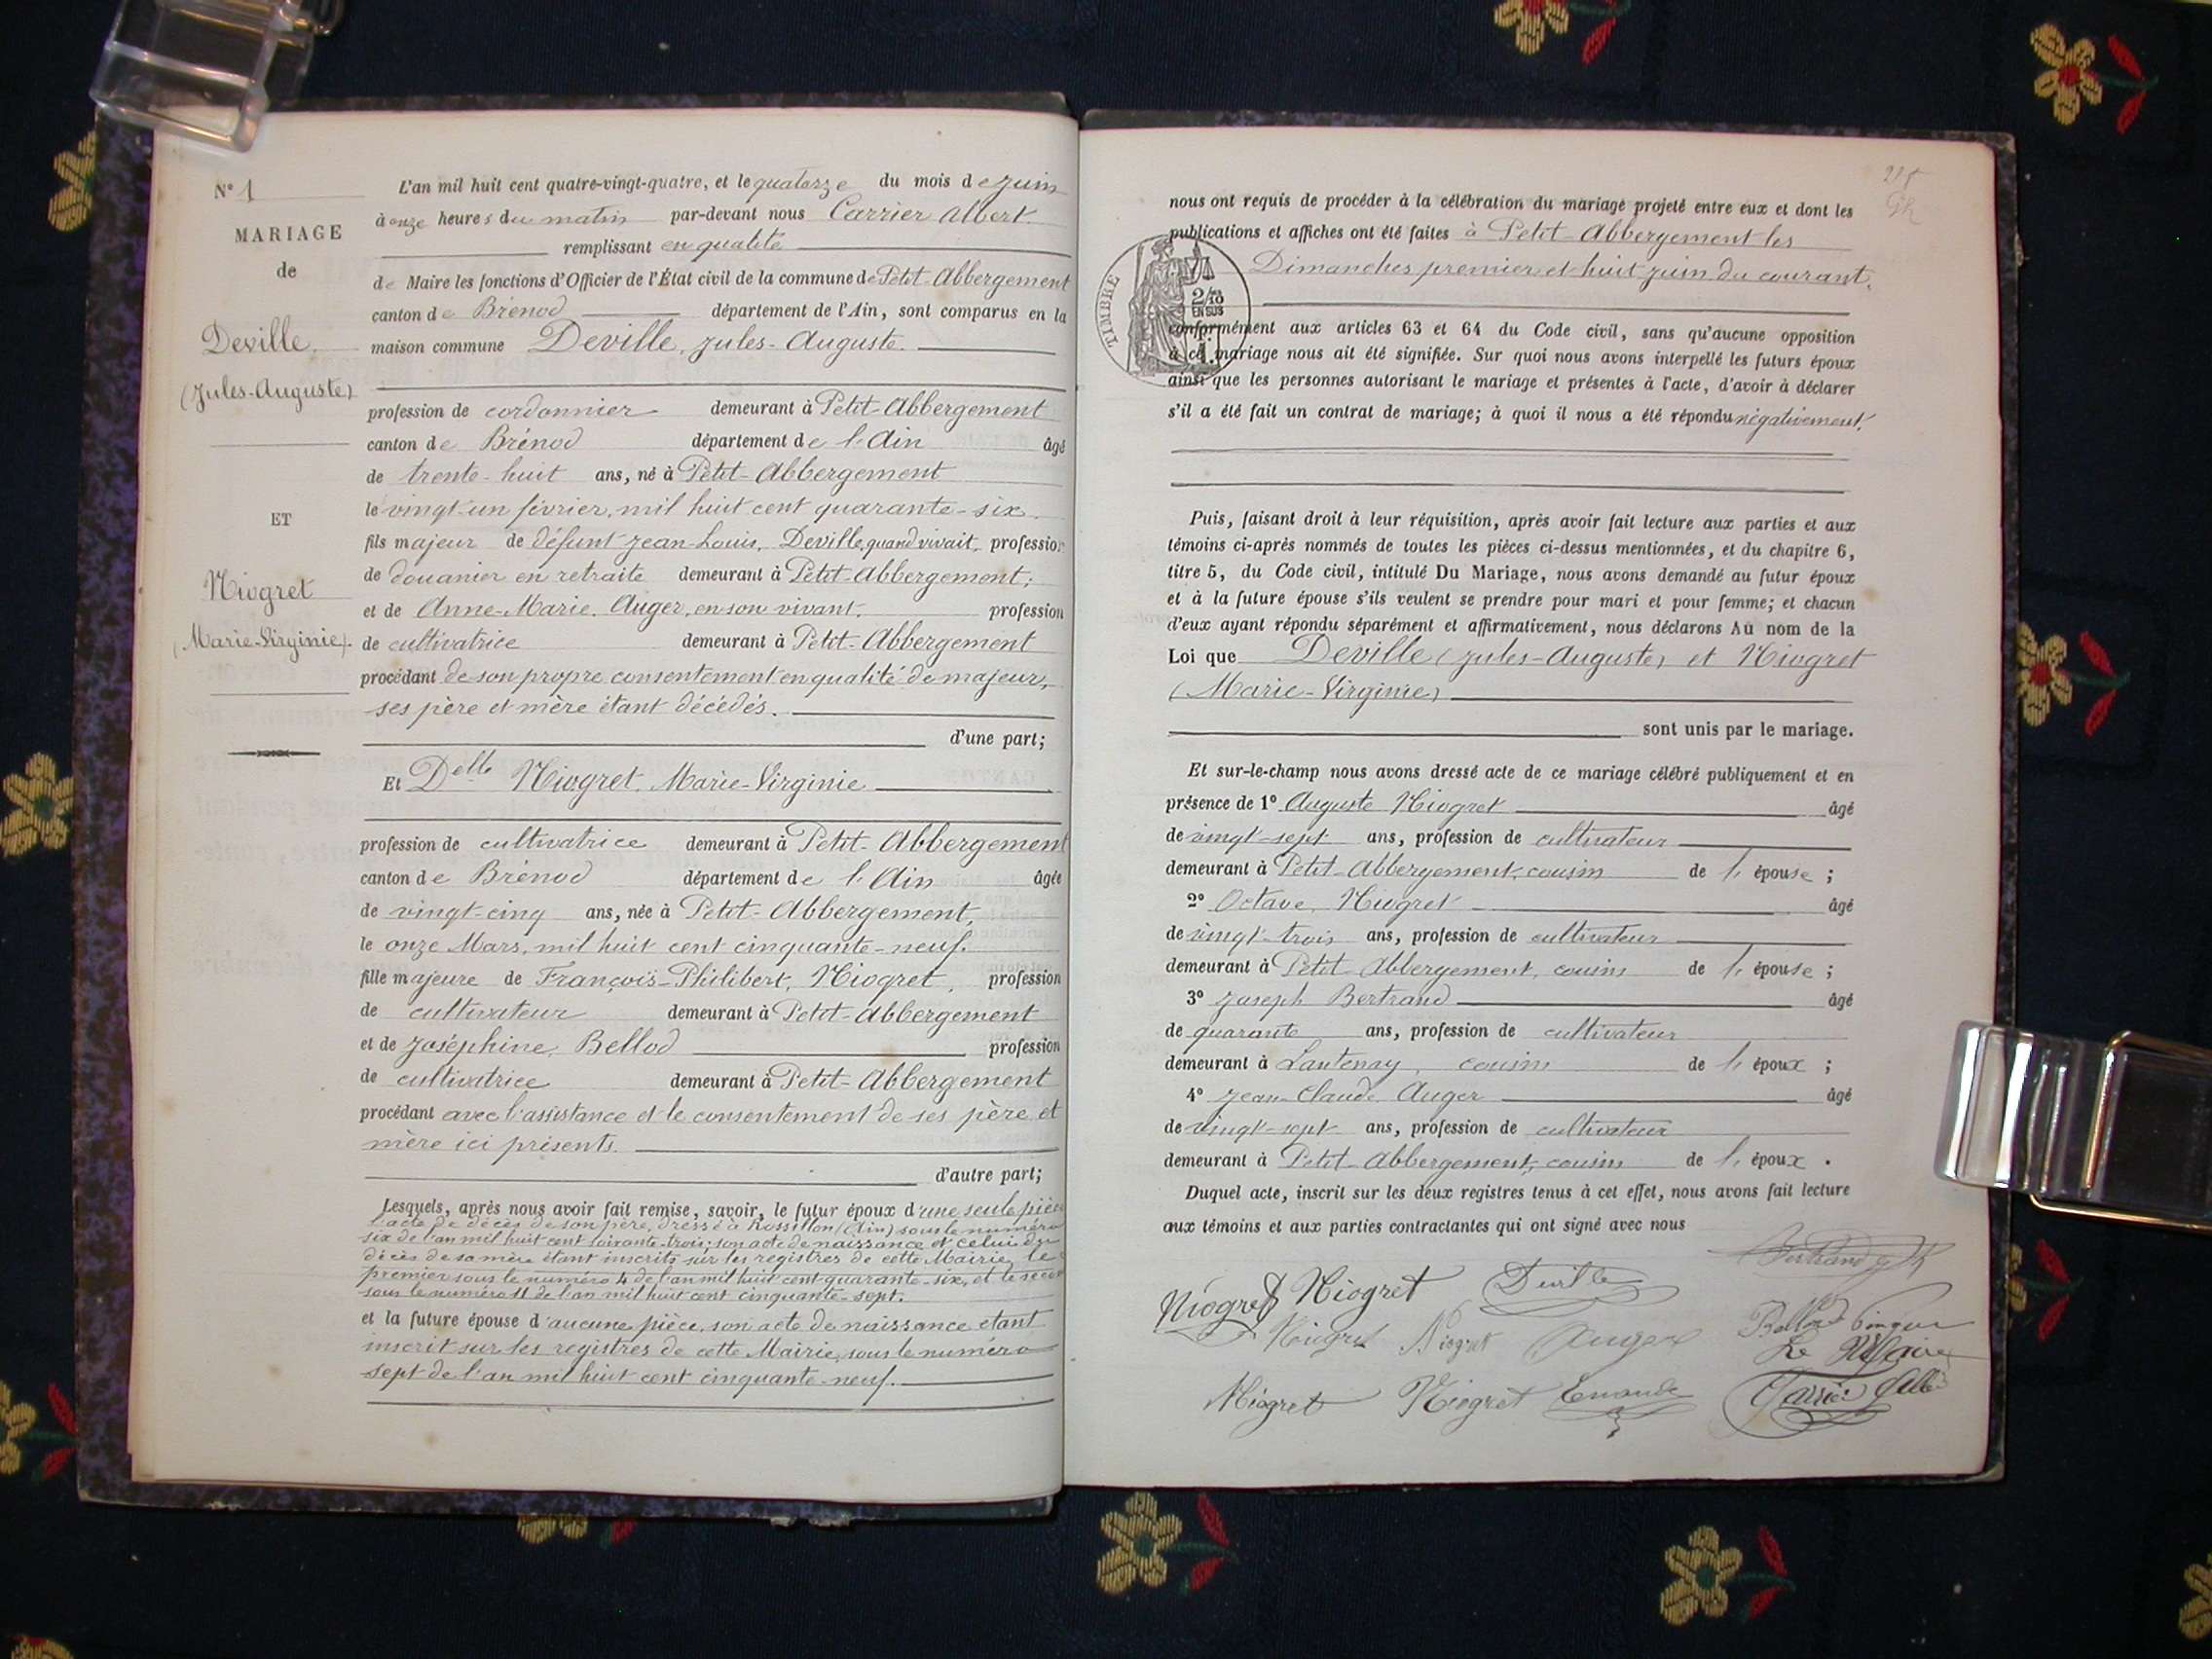 N° 1
MARIAGE
de
Deville,
(Jules-Auguste)
ET
Niogret
(Marie-Virginie).
L'an mil huit cent quatre-vingt-quatre, et le quatorze du mois de Juin
à onze heures du matin par-devant nous Carrier Albert
remplissant en qualité
de Maire les fonctions d'Officier de l'État civil de la commune de Petit-Abbergement
canton de Brénod département de l'Ain, sont comparus en la
maison commune Deville, Jules-Auguste.
profession de cordonnier demeurant à Petit-Abbergement
canton de Brénod département de l'Ain âgé
de trente-huit ans, né à Petit-Abbergement
le vingt-un février, mil huit cent quarante-six.
fils majeur de défunt Jean-Louis, Deville, quand vivait, profession
de douanier en retraite demeurant à Petit-Abbergement;
et de Anne-Marie, Auger, en son vivant, profession
de cultivatrice demeurant à Petit-Abbergement
procédant de son propre consentement en qualité de majeur,
ses père et mère étant décédés.
d'une part;
Et Delle Niogret, Marie-Virginie
profession de cultivatrice demeurant à Petit-Abbergement
canton de Brénod département de l'Ain âgée
de vingt-cinq ans, née à Petit-Abbergement,
le onze Mars, mil huit cent cinquante-neuf.
fille majeure de François-Philibert, Niogret, profession
de cultivateur demeurant à Petit-Abbergement
et de Joséphine, Bellod profession
de cultivatrice demeurant à Petit-Abbergement
procédant avec l'assistance et le consentement de ses père et
mère ici présents.
d'autre part;
Lesquels, après nous avoir fait remise, savoir, le futur époux d'une seule pièce
l'acte de décès de son père, dressé à Rossillon (Ain) sous le numéro
six de l'an mil huit cent soixante-trois; son acte de naissance et celui du
décès de sa mère étant inscrits sur les registres de cette Mairie, le
premier sous le numéro 4 de l'an mil huit cent quarante-six, et le second
sous le numéro 11 de l'an mil huit cent cinquante-sept.
et la future épouse d'aucune pièce, son acte de naissance étant
inscrit sur les registres de cette Mairie, sous le numéro
sept de l'an mil huit cent cinquante-neuf.
nous ont requis de procéder à la célébration du mariage projeté entre eux et dont les
publications et affiches ont été faites à Petit-Abbergement les
Dimanches premier et huit juin du courant.
TIMBRE
2/10
EN SUS
conformément aux articles 63 et 64 du Code civil, sans qu'aucune opposition
à ce mariage nous ait été signifiée. Sur quoi nous avons interpellé les futurs époux
ainsi que les personnes autorisant le mariage et présentes à l'acte, d'avoir à déclarer
s'il a été fait un contrat de mariage; à quoi il nous a été répondu négativement.
Puis, faisant droit à leur réquisition, après avoir fait lecture aux parties et aux
témoins ci-après nommés de toutes les pièces ci-dessus mentionnées, et du chapitre 6,
titre 5, du Code civil, intitulé Du Mariage, nous avons demandé au futur époux
et à la future épouse s'ils veulent se prendre pour mari et pour femme; et chacun
d'eux ayant répondu séparément et affirmativement, nous déclarons Au nom de la
Loi que Deville (Jules-Auguste) et Niogret
(Marie-Virginie)
sont unis par le mariage.
Et sur-le-champ nous avons dressé acte de ce mariage célébré publiquement et en
présence de 1° Auguste Niogret âgé
de vingt-sept ans, profession de cultivateur
demeurant à Petit-Abbergement, cousin de l'épouse;
2° Octave, Niogret âgé
de vingt-trois ans, profession de cultivateur
demeurant à Petit-Abbergement, cousin de l'épouse;
3° Joseph Bertrand âgé
de quarante ans, profession de cultivateur
demeurant à Lantenay, cousin de l'époux;
4° Jean-Claude Auger âgé
de vingt-sept ans, profession de cultivateur
demeurant à Petit-Abbergement, cousin de l'époux.
Duquel acte, inscrit sur les deux registres tenus à cet effet, nous avons fait lecture
aux témoins et aux parties contractantes qui ont signé avec nous
Bertrand
Niogret Niogret Deville
Niogret Niogret Auger Bellod
Le Maire
Niogret Niogret Carrier Albert